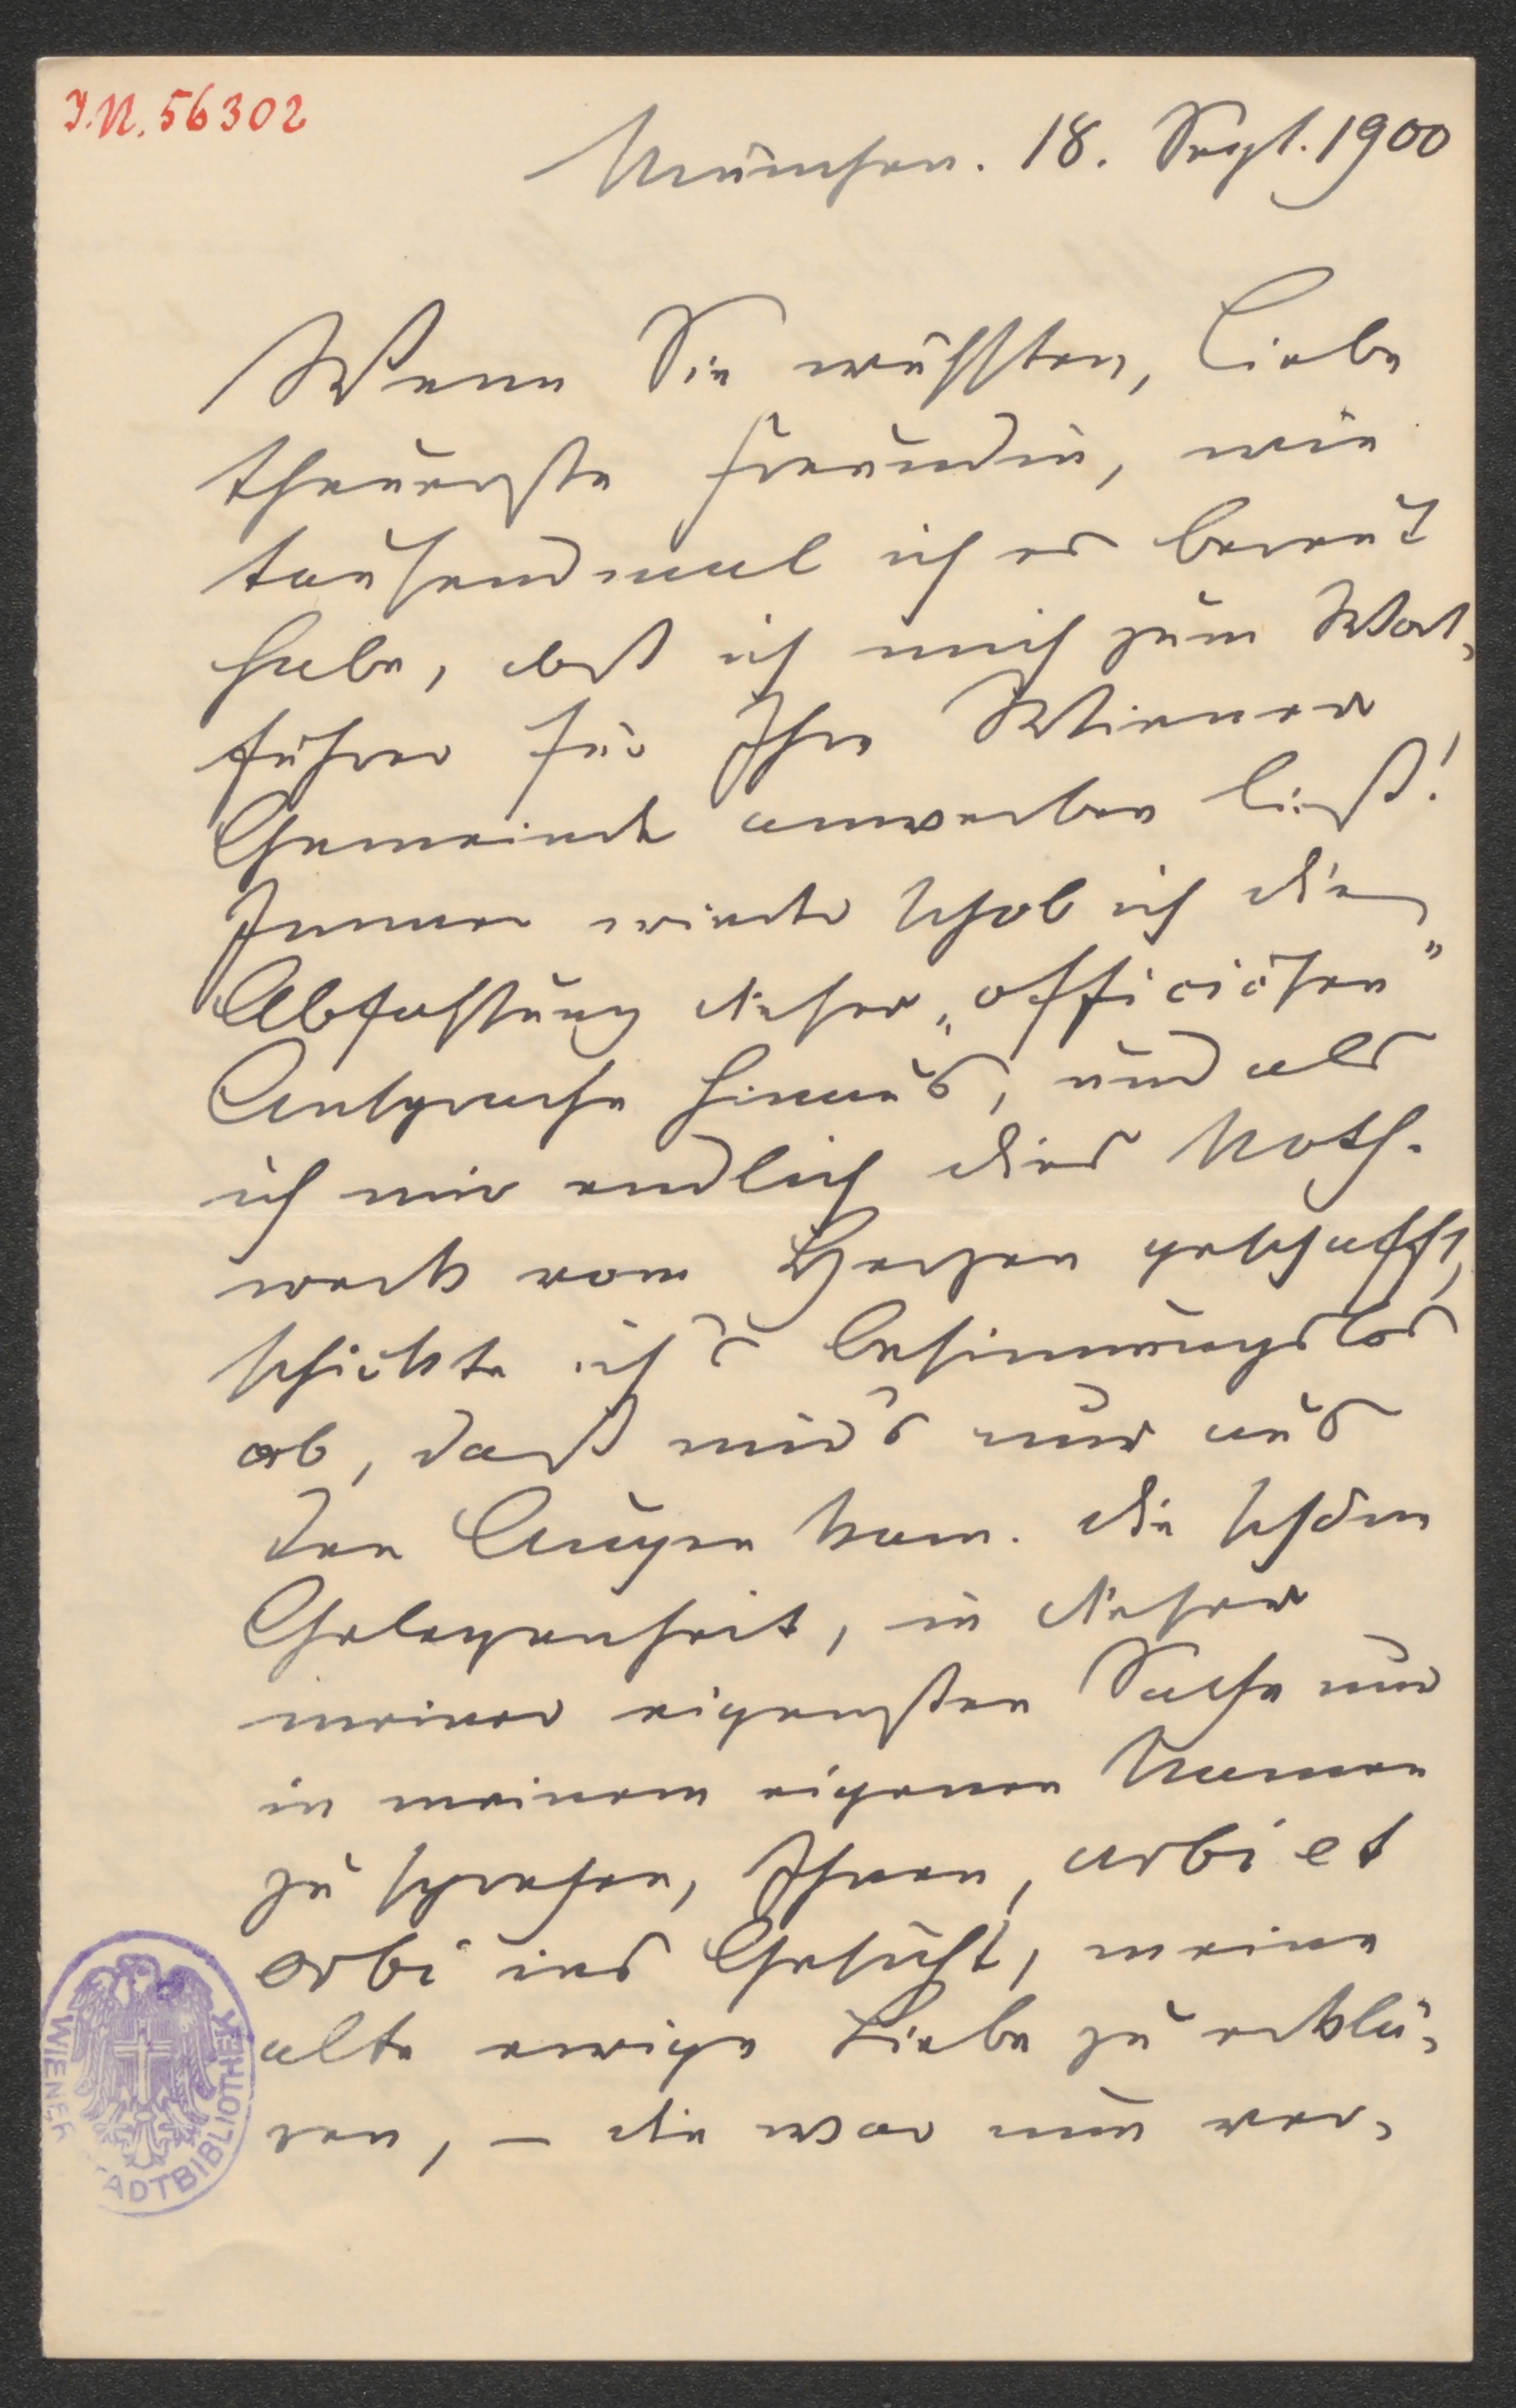 I.N. 56302
München. 18. Sept. 1900
Wenn Sie wüssten, liebe
theuerste Freundin, wie
tausendmal ich es bereut
habe, daß ich mich zum Wort-
führer für Ihre Wiener
Gemeinde anwerben ließ!
Immer wieder schob ich die
Abfassung dieser „officiösen"
Ansprache hinaus, und als
ich mir endlich dies Noth-
werk vom Herzen geschafft,
schickte ich's besinnungslos
ab, daß mir's nur aus
den Augen kam. Die schöne
Gelegenheit, in dieser
meiner eigensten Sache nur
in meinem eigenen Namen
zu sprechen, Ihnen, urbi et
orbi ins Gesicht, meine
alte ewige Liebe zu erklä-
ren, – die war nun ver-
WIENER STADTBIBLIOTHEK